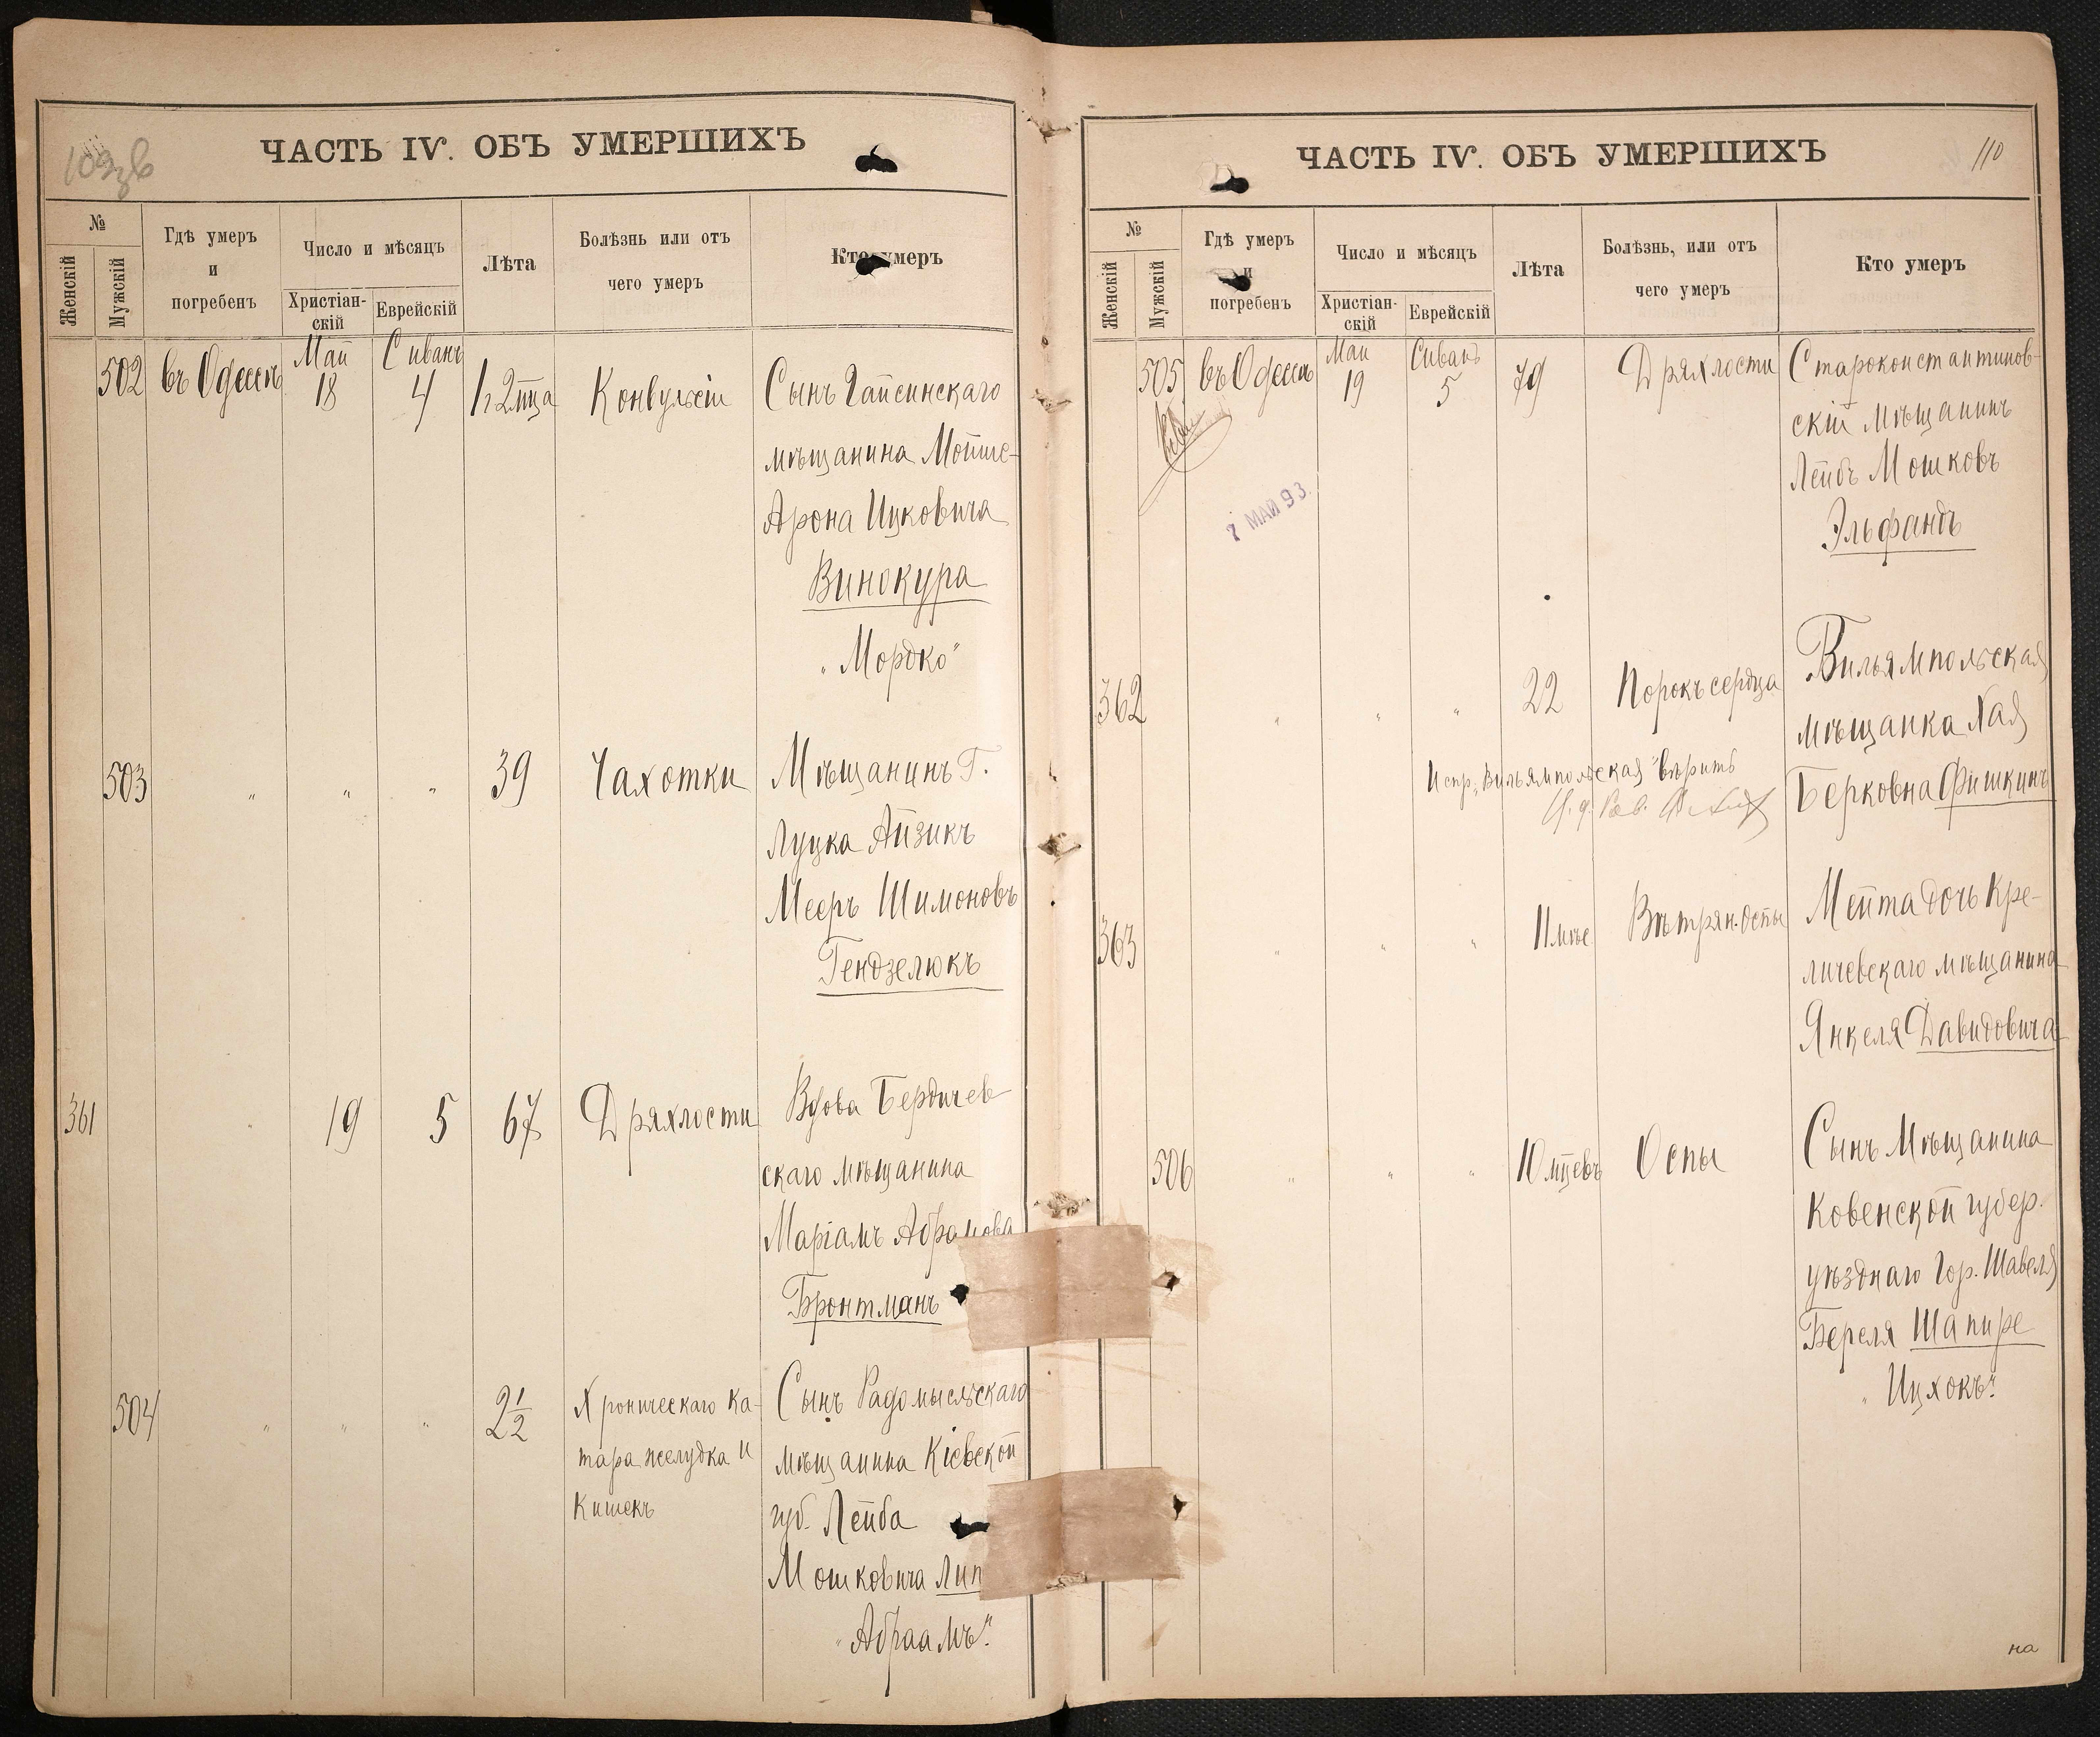 109зв
ЧАСТЬ IV. ОБЪ УМЕРШИХЪ
№
Женскій
Мужскій
Гдѣ умеръ
и
погребенъ
Число и мѣсяцъ
Христіан-
скій
Еврейскій
Лѣта
Болѣзнь или отъ
чего умеръ
Кто умеръ
502 въ Одессѣ Май 18 Сиванъ 4 1 г 2 мца Конвульсіи Сынъ Гайсинскаго
мѣщанина Мойше-
Арона Ицковича
Винокура
"Мордко"
503 " " " 39 Чахотки Мѣщанинъ Г.
Луцка Айзикъ
Мееръ Шимоновъ
Гендзелюкъ
361 " 19 5 67 Дряхлости Вдова Бердичев
скаго мѣщанина
Маріамъ Абрамова
Бронтманъ
504 " " " 2 1/2 Хроническаго Ка- Сынъ Радомысльскаго
тара желудка и мѣщанина Кіевской
Кишекъ губ. Лейба
Мошковича Лип
"Абраамъ".
110
ЧАСТЬ IV. ОБЪ УМЕРШИХЪ
№
Женскій
Мужскій
Гдѣ умеръ
и
погребенъ
Число и мѣсяцъ
Христіан-
скій
Еврейскій
Лѣта
Болѣзнь, или отъ
чего умеръ
Кто умеръ
505 въ Одессѣ Май 19 Сиванъ 5 79 Дряхлости Староконстантинов-
скій Мѣщанинъ
Лейбъ Мошковъ
Эльфандъ
7 МАЙ 93
362 " " " 22 Порокъ сердца Вильямпольская
мѣщанка Хая
Берковна Фишкинъ
Испр. "Вильямпольская" вѣрить
И. д. Рав.
363 " " " 11 мѣс Вѣтрян. Оспы Мейта дочь Кре-
личевскаго мѣщанина
Янкеля Давидовича
506 " " " 10 мцевъ Оспы Сынъ Мѣщанина
Ковенской губер.
уѣзднаго Гор. Шавеля
Береля Шапире
"Ицхокъ".
на